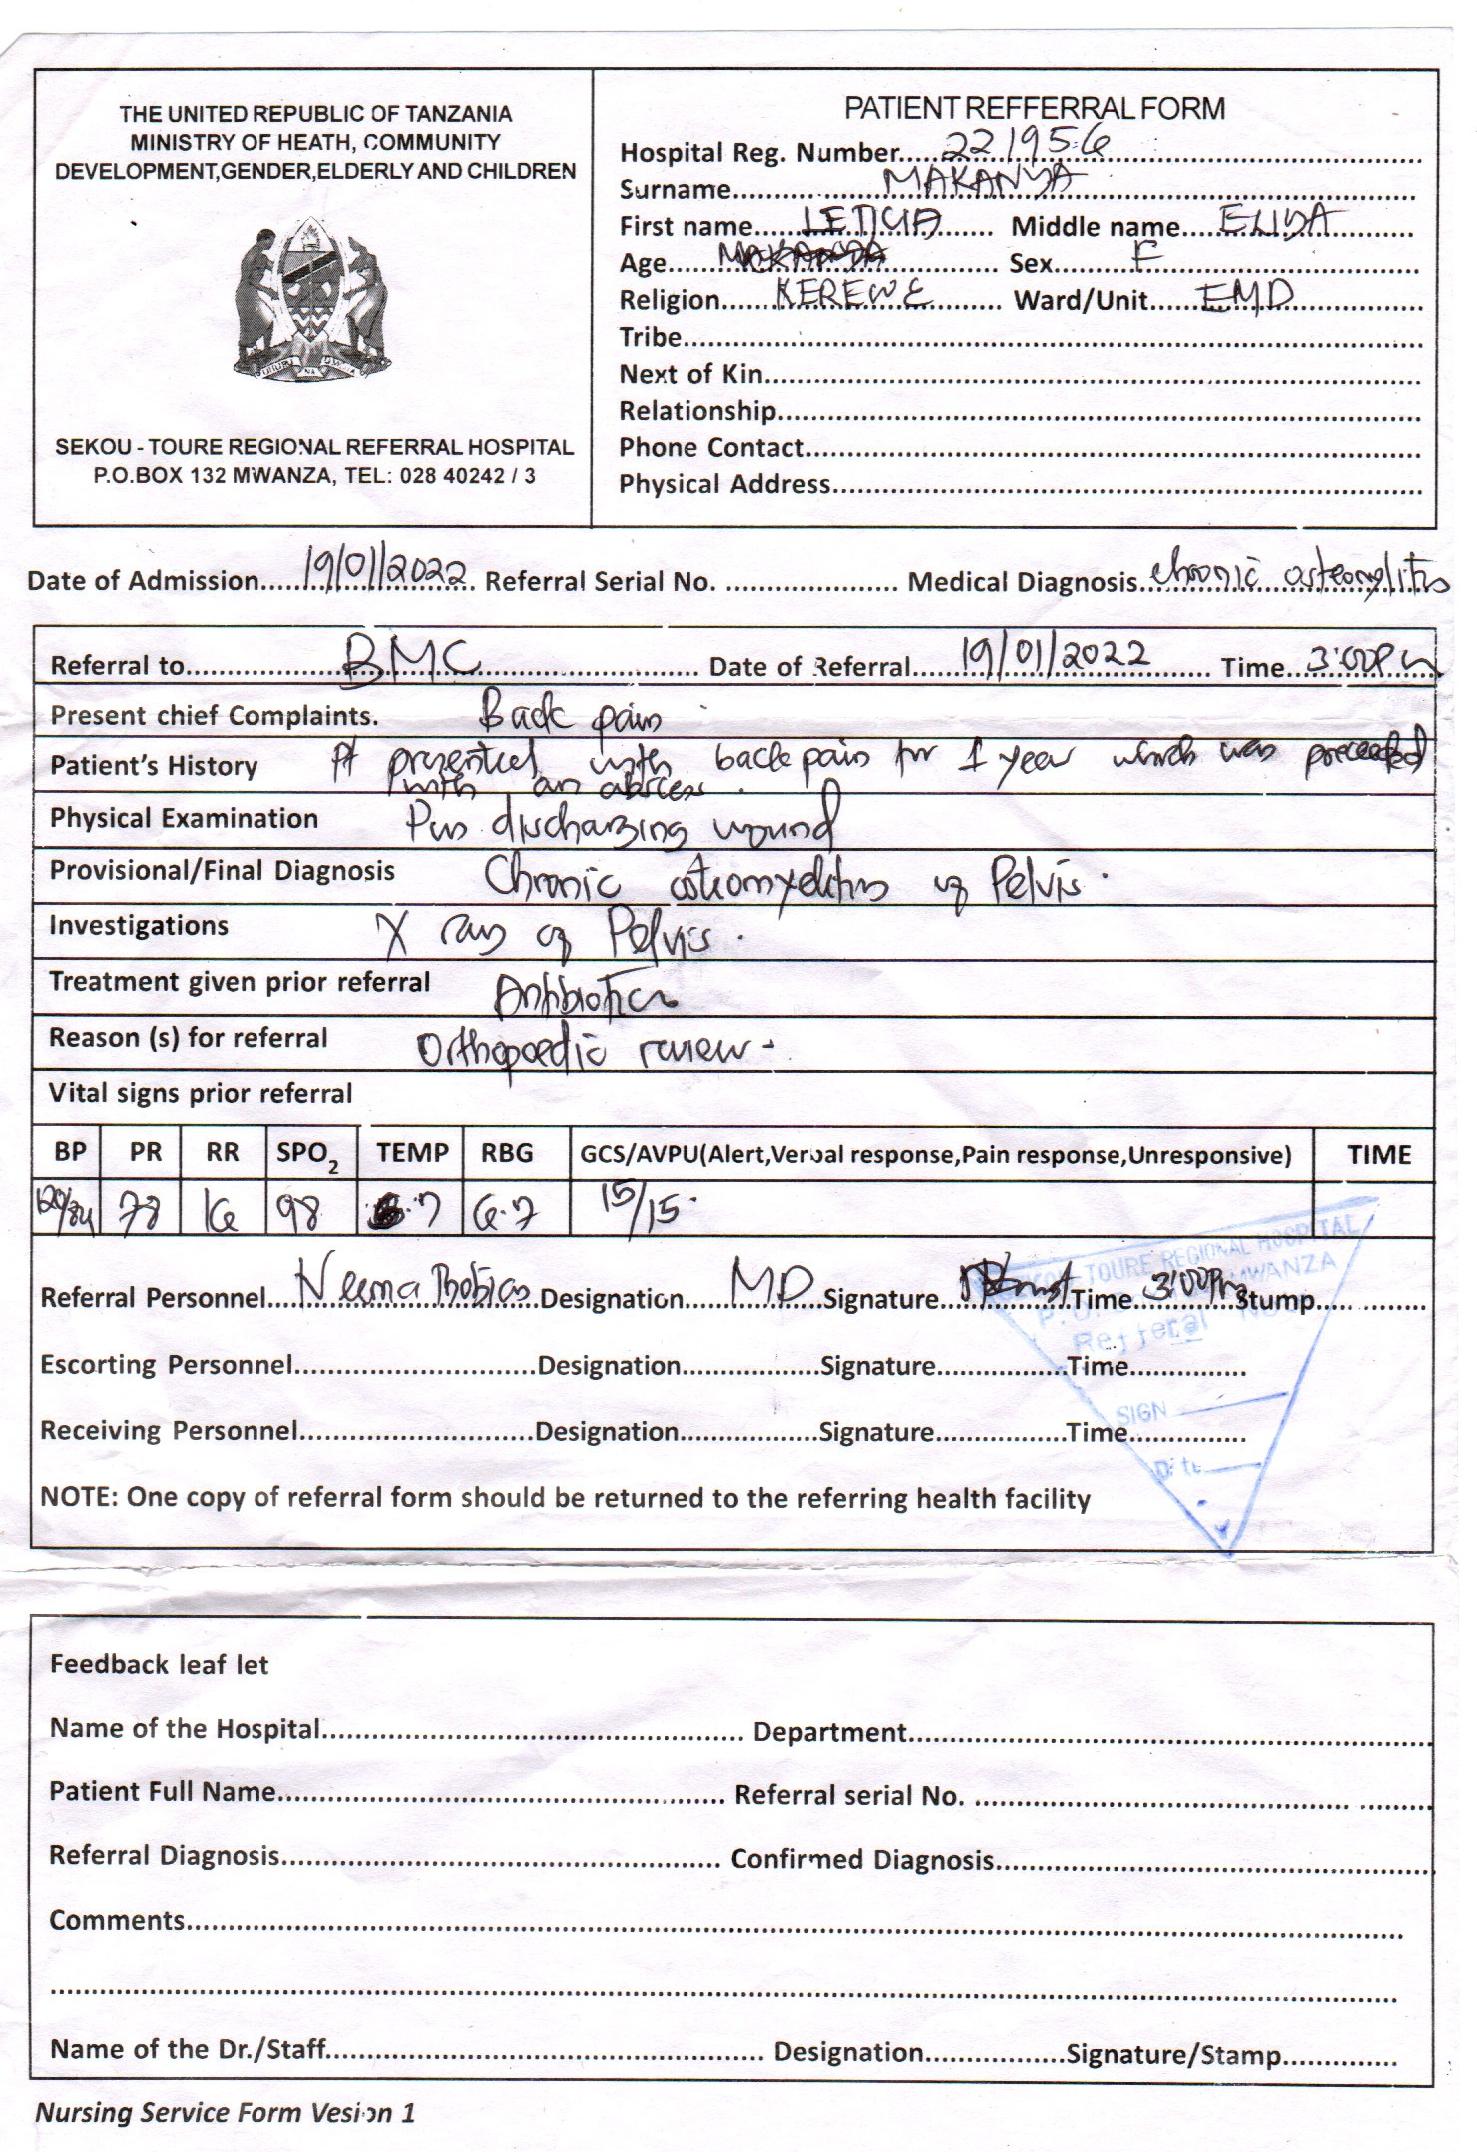 THE UNITED REPUBLIC OF TANZANIA
MINISTRY OF HEATH, COMMUNITY
DEVELOPMENT,GENDER,ELDERLY AND CHILDREN
UHURU NA UMOJA
SEKOU - TOURE REGIONAL REFERRAL HOSPITAL
P.O.BOX 132 MWANZA, TEL: 028 40242 / 3
PATIENT REFFERRAL FORM
Hospital Reg. Number....221956
Surname....MAKANYA
First name....LETICIA Middle name....ELIYA
Age.... Sex....F
Religion....KEREWE Ward/Unit....EMD
Tribe....
Next of Kin....
Relationship....
Phone Contact....
Physical Address....
Date of Admission....19/01/2022 Referral Serial No. .... Medical Diagnosis....chronic osteomylitis
Referral to....BMC.... Date of Referral....19/01/2022 Time....3:00Pm
Present chief Complaints. Back pain
Patient's History Pt presented with back pain for 1 year which was preceeded
with an abscess.
Physical Examination Pus discharging wound
Provisional/Final Diagnosis Chronic osteomyelitis of Pelvis.
Investigations X ray of Pelvis.
Treatment given prior referral Antibiotics
Reason (s) for referral Orthopaedic review -
Vital signs prior referral
BP PR RR SPO2 TEMP RBG GCS/AVPU(Alert,Verbal response,Pain response,Unresponsive) TIME
120/84 78 16 98 6.7 15/15
Referral Personnel....Neema Thobias Designation....MD Signature.... Time 3:00Pm Stump....
Escorting Personnel....Designation....Signature....Time....
Receiving Personnel....Designation....Signature....Time....
SEKOU-TOURE REGIONAL HOSPITAL
MWANZA
Refferal NO
SIGN
Date
NOTE: One copy of referral form should be returned to the referring health facility
Feedback leaf let
Name of the Hospital.... Department....
Patient Full Name.... Referral serial No. ....
Referral Diagnosis.... Confirmed Diagnosis....
Comments....
Name of the Dr./Staff.... Designation....Signature/Stamp....
Nursing Service Form Vesion 1